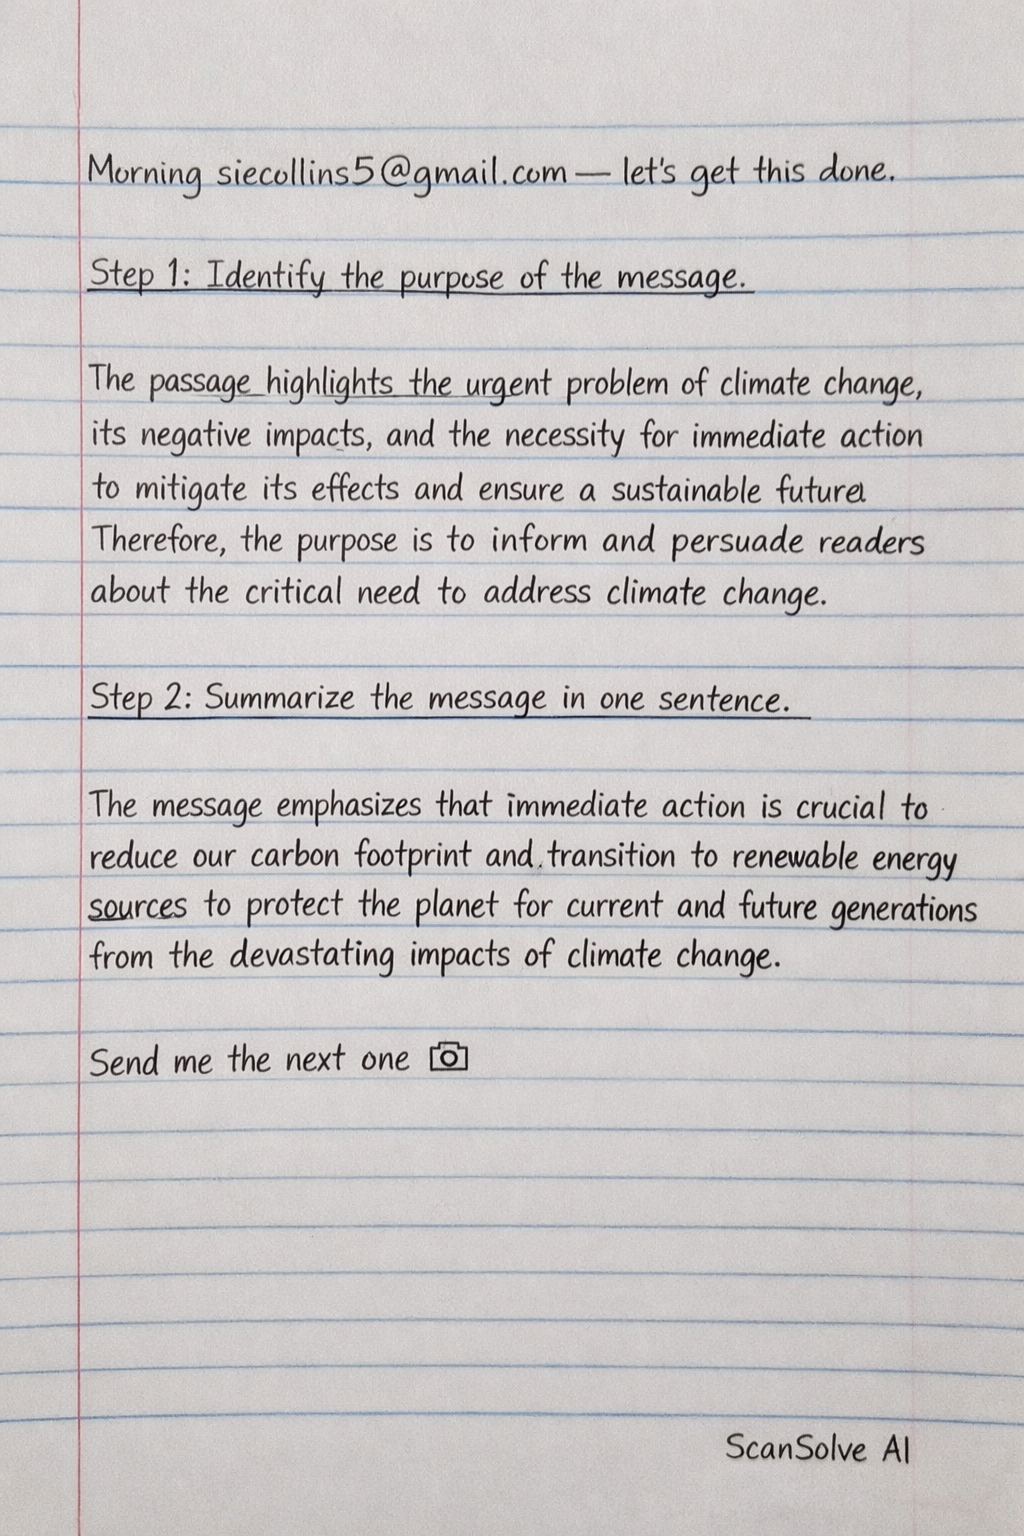 Morning siecollins5@gmail.com — let's get this done.
Step 1: Identify the purpose of the message.
The passage highlights the urgent problem of climate change,
its negative impacts, and the necessity for immediate action
to mitigate its effects and ensure a sustainable future
Therefore, the purpose is to inform and persuade readers
about the critical need to address climate change.
Step 2: Summarize the message in one sentence.
The message emphasizes that immediate action is crucial to
reduce our carbon footprint and transition to renewable energy
sources to protect the planet for current and future generations
from the devastating impacts of climate change.
Send me the next one 📷
ScanSolve AI